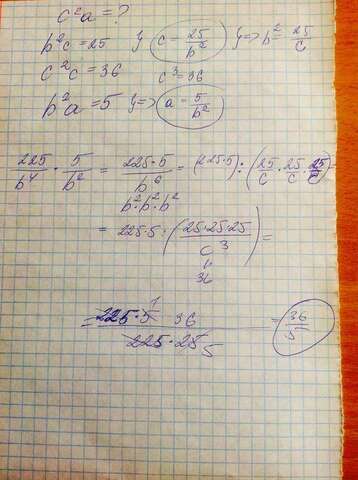 c²a = ?
b²c = 25 y c = 25/b² y=> b² = 25/c
c²c = 36 c³ = 36
b²a = 5 y=> a = 5/b²
225/b⁴ · 5/b² = 225·5/b⁶ = (225·5) : (25/c · 25/c · 25/c)
b²·b²·b²
= 225·5 : (25·25·25/c³) =
36
= 225·5 36/225·25 = 36/5
1
5